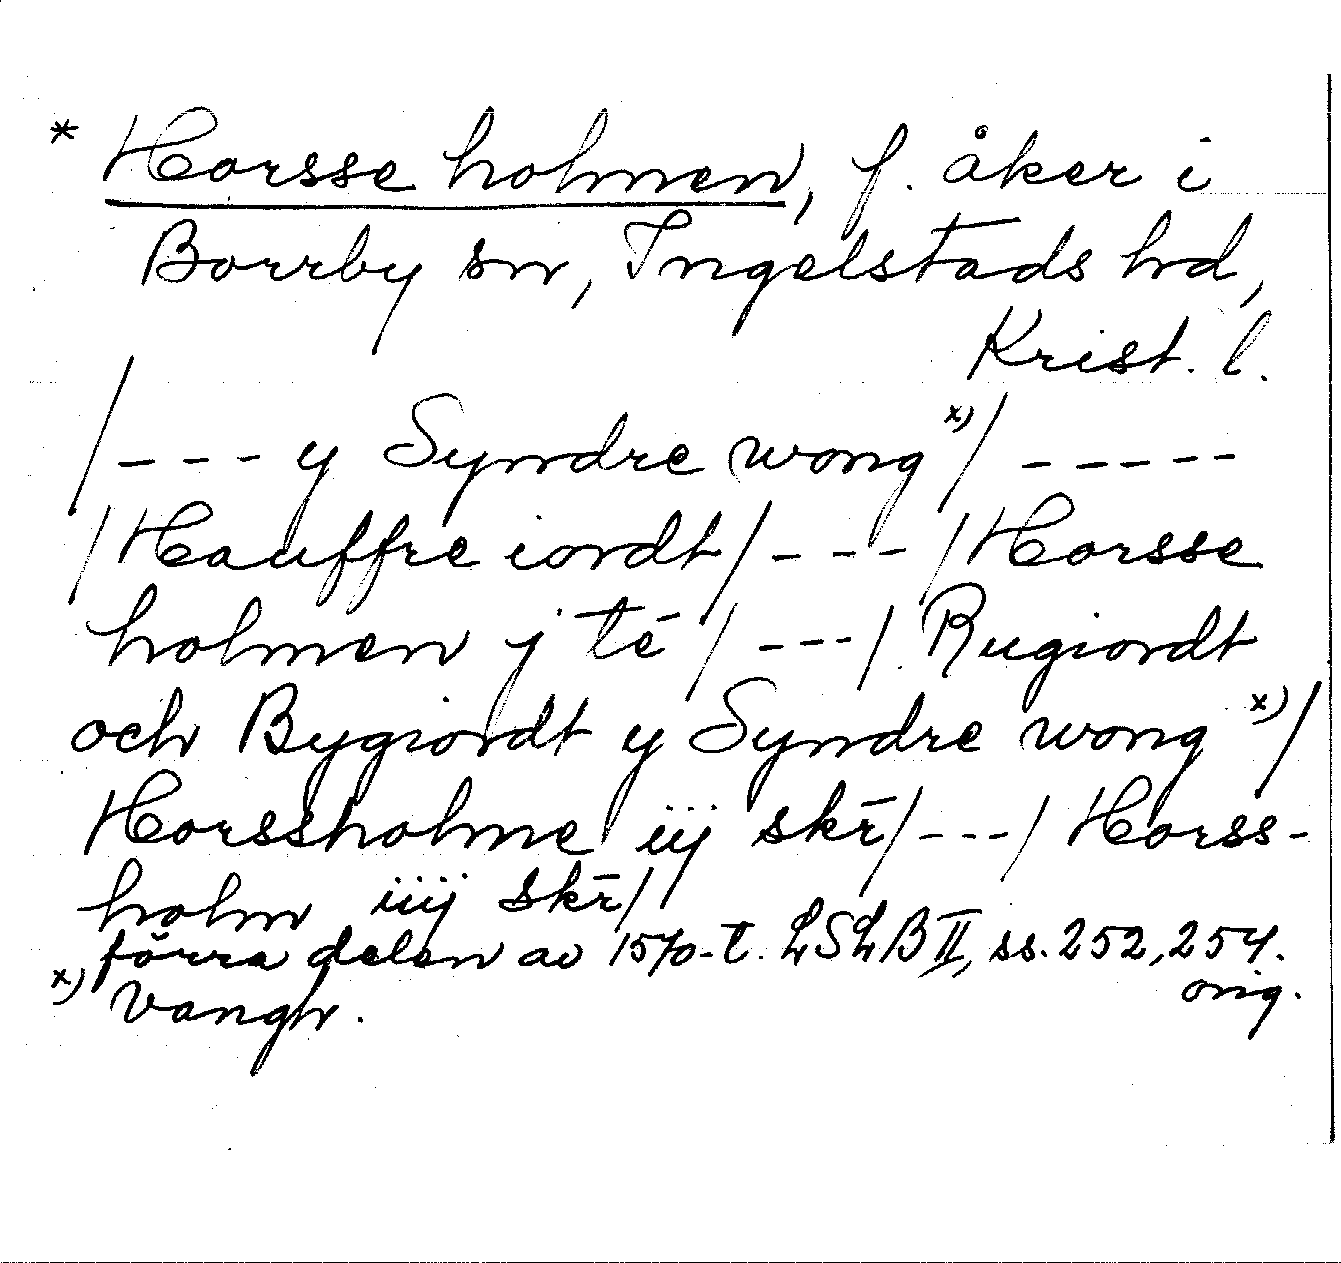 * Horsse holmen, f. åker i
Borrby sn, Ingelstads hd,
Krist. l.
/--- y Syndre wong x)/ -----
/Hauffre iordt/ --- /Horsse
holmen j té /---/ Rugiordt
och Bygiordt y Syndre wong x)/
Horssholme iij skr̄/---/ Horss-
holm iiij skr̄/
förra delen av 1570-t. LSLB II, ss. 252, 254.
orig.
x) Vangh.